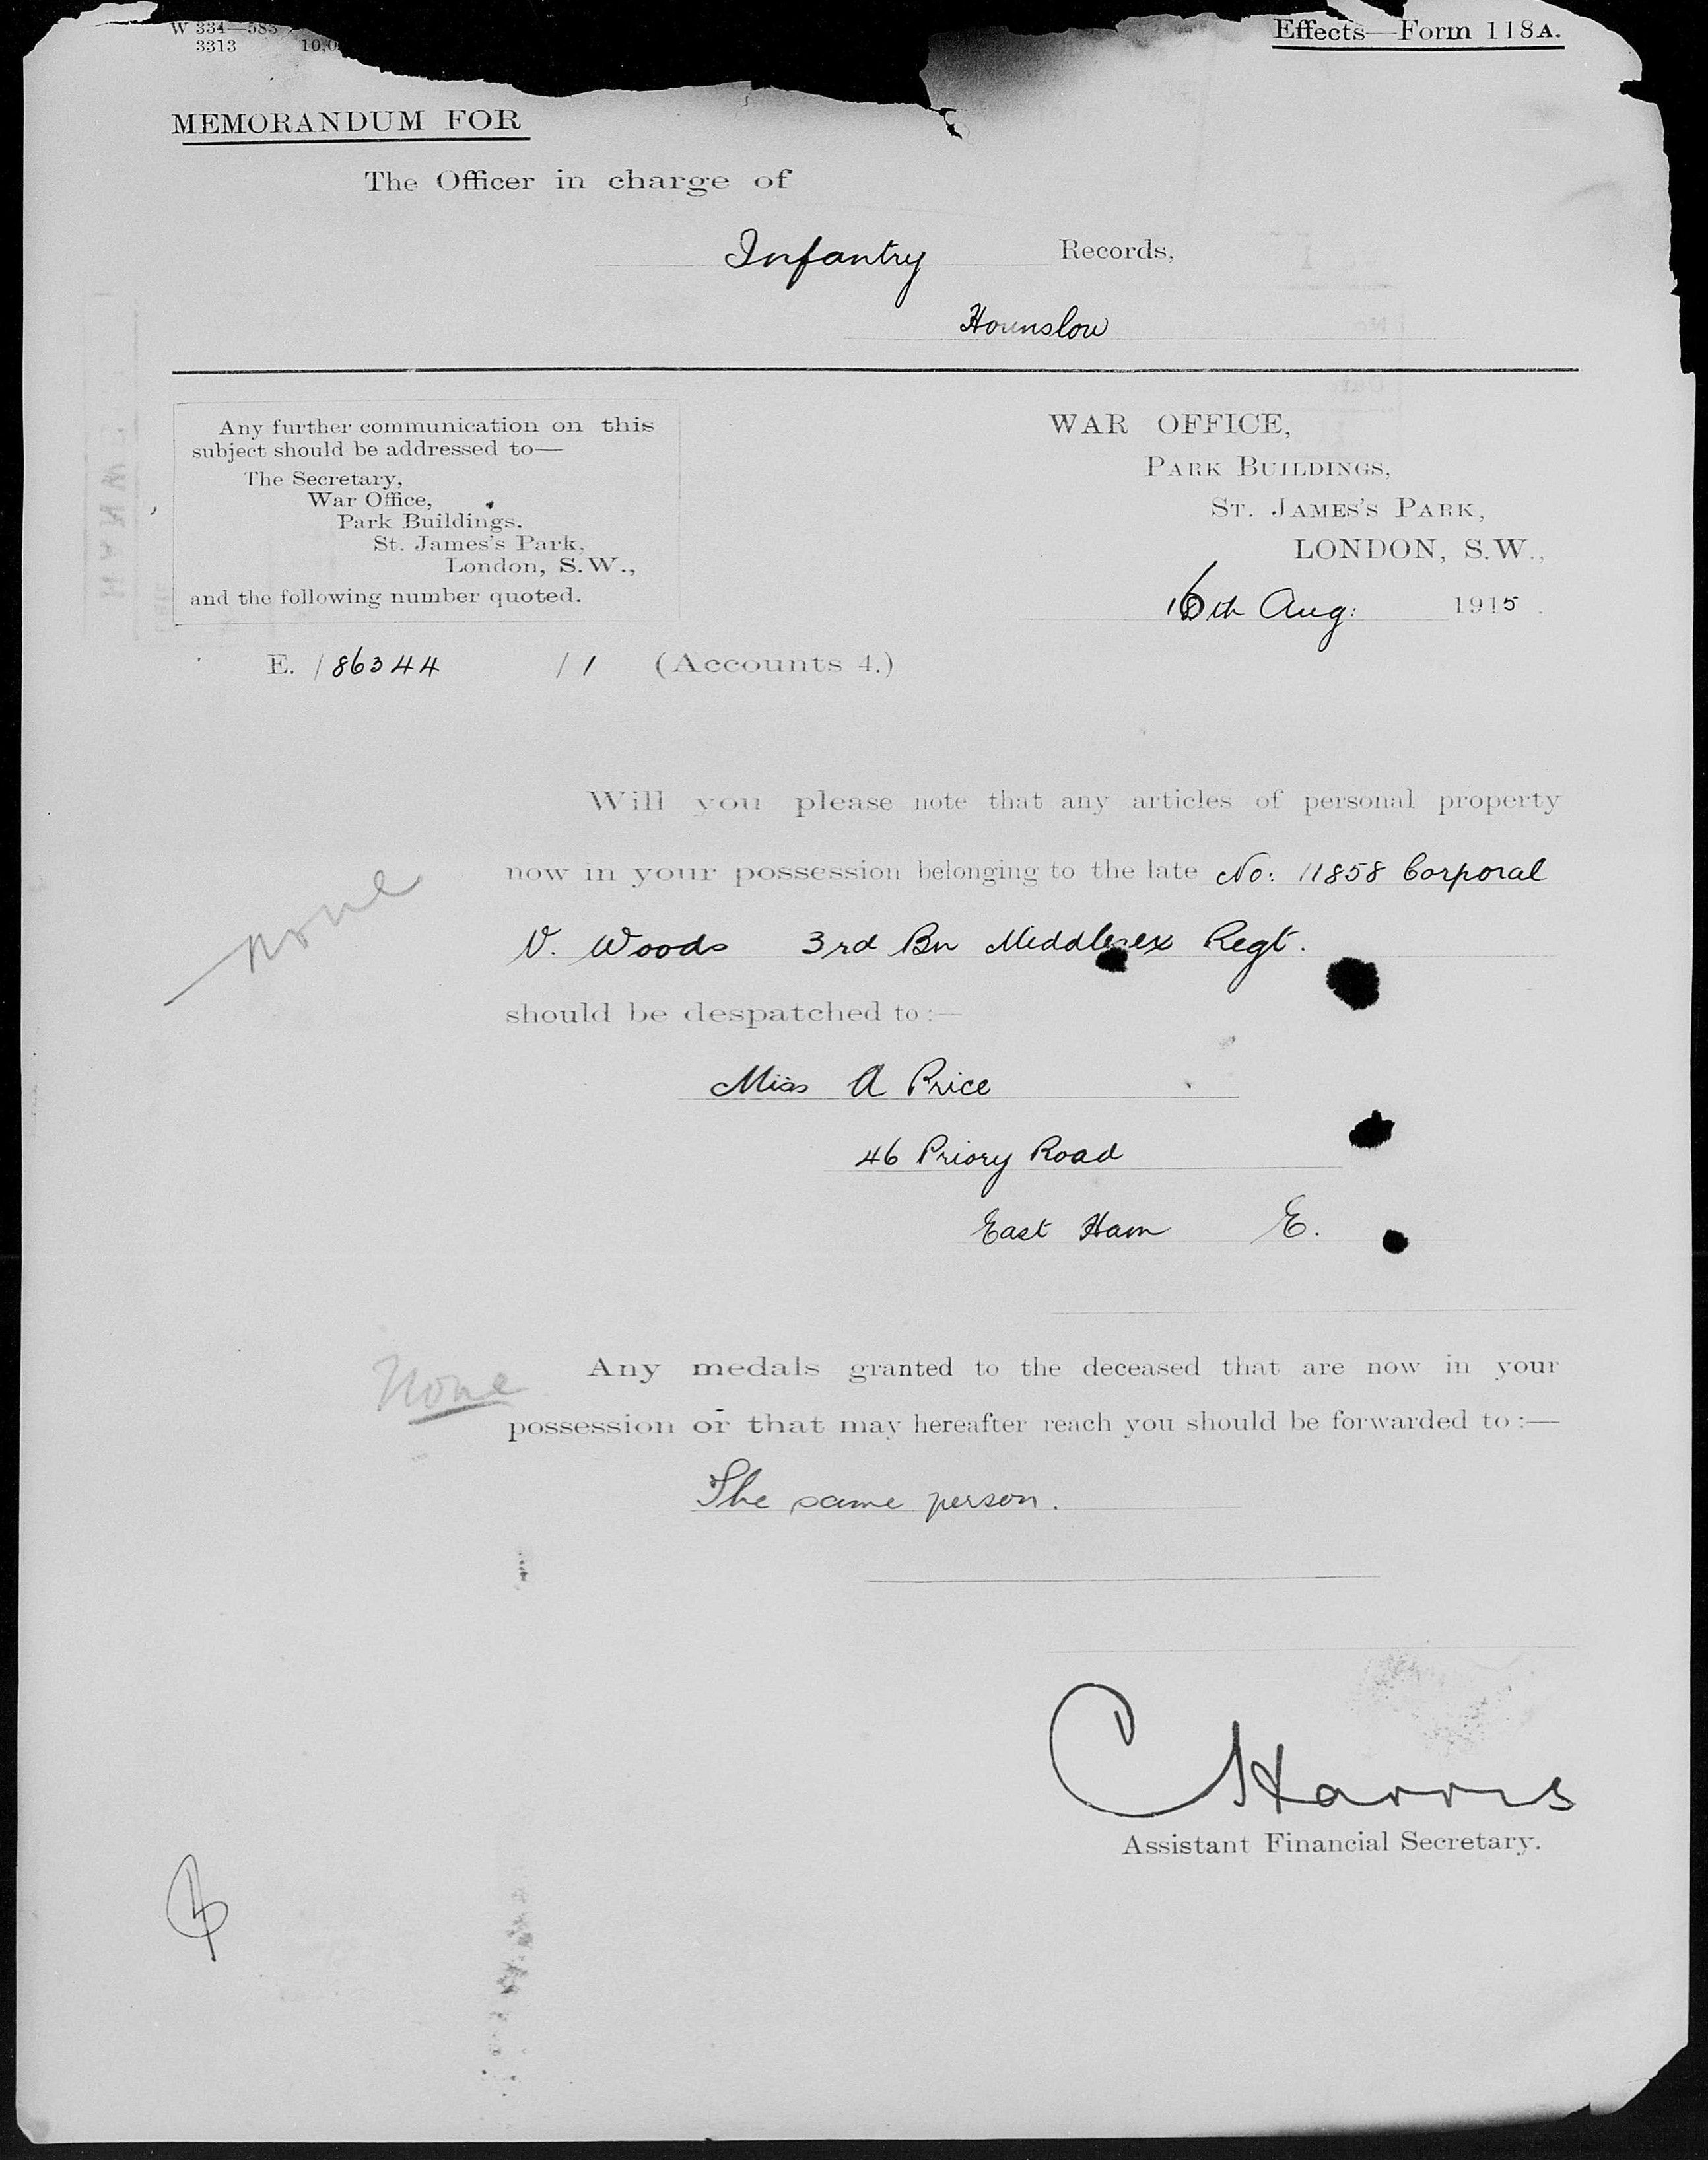 W 334—583
3313 10,0
Effects—Form 118A.
MEMORANDUM FOR
The Officer in charge of
Infantry Records,
Hounslow
Any further communication on this
subject should be addressed to—
The Secretary,
War Office,
Park Buildings,
St. James's Park,
London, S.W.,
and the following number quoted.
WAR OFFICE,
PARK BUILDINGS,
ST. JAMES'S PARK,
LONDON, S.W.,
16th Aug: 1915.
E. / 86344 / 1 (Accounts 4.)
Will you please note that any articles of personal property
none
now in your possession belonging to the late No: 11858 Corporal
V. Woods 3rd Bn Middlesex Regt.
should be despatched to:—
Miss A Price
46 Priory Road
East Ham E.
None
Any medals granted to the deceased that are now in your
possession or that may hereafter reach you should be forwarded to:—
The same person.
C Harris
Assistant Financial Secretary.